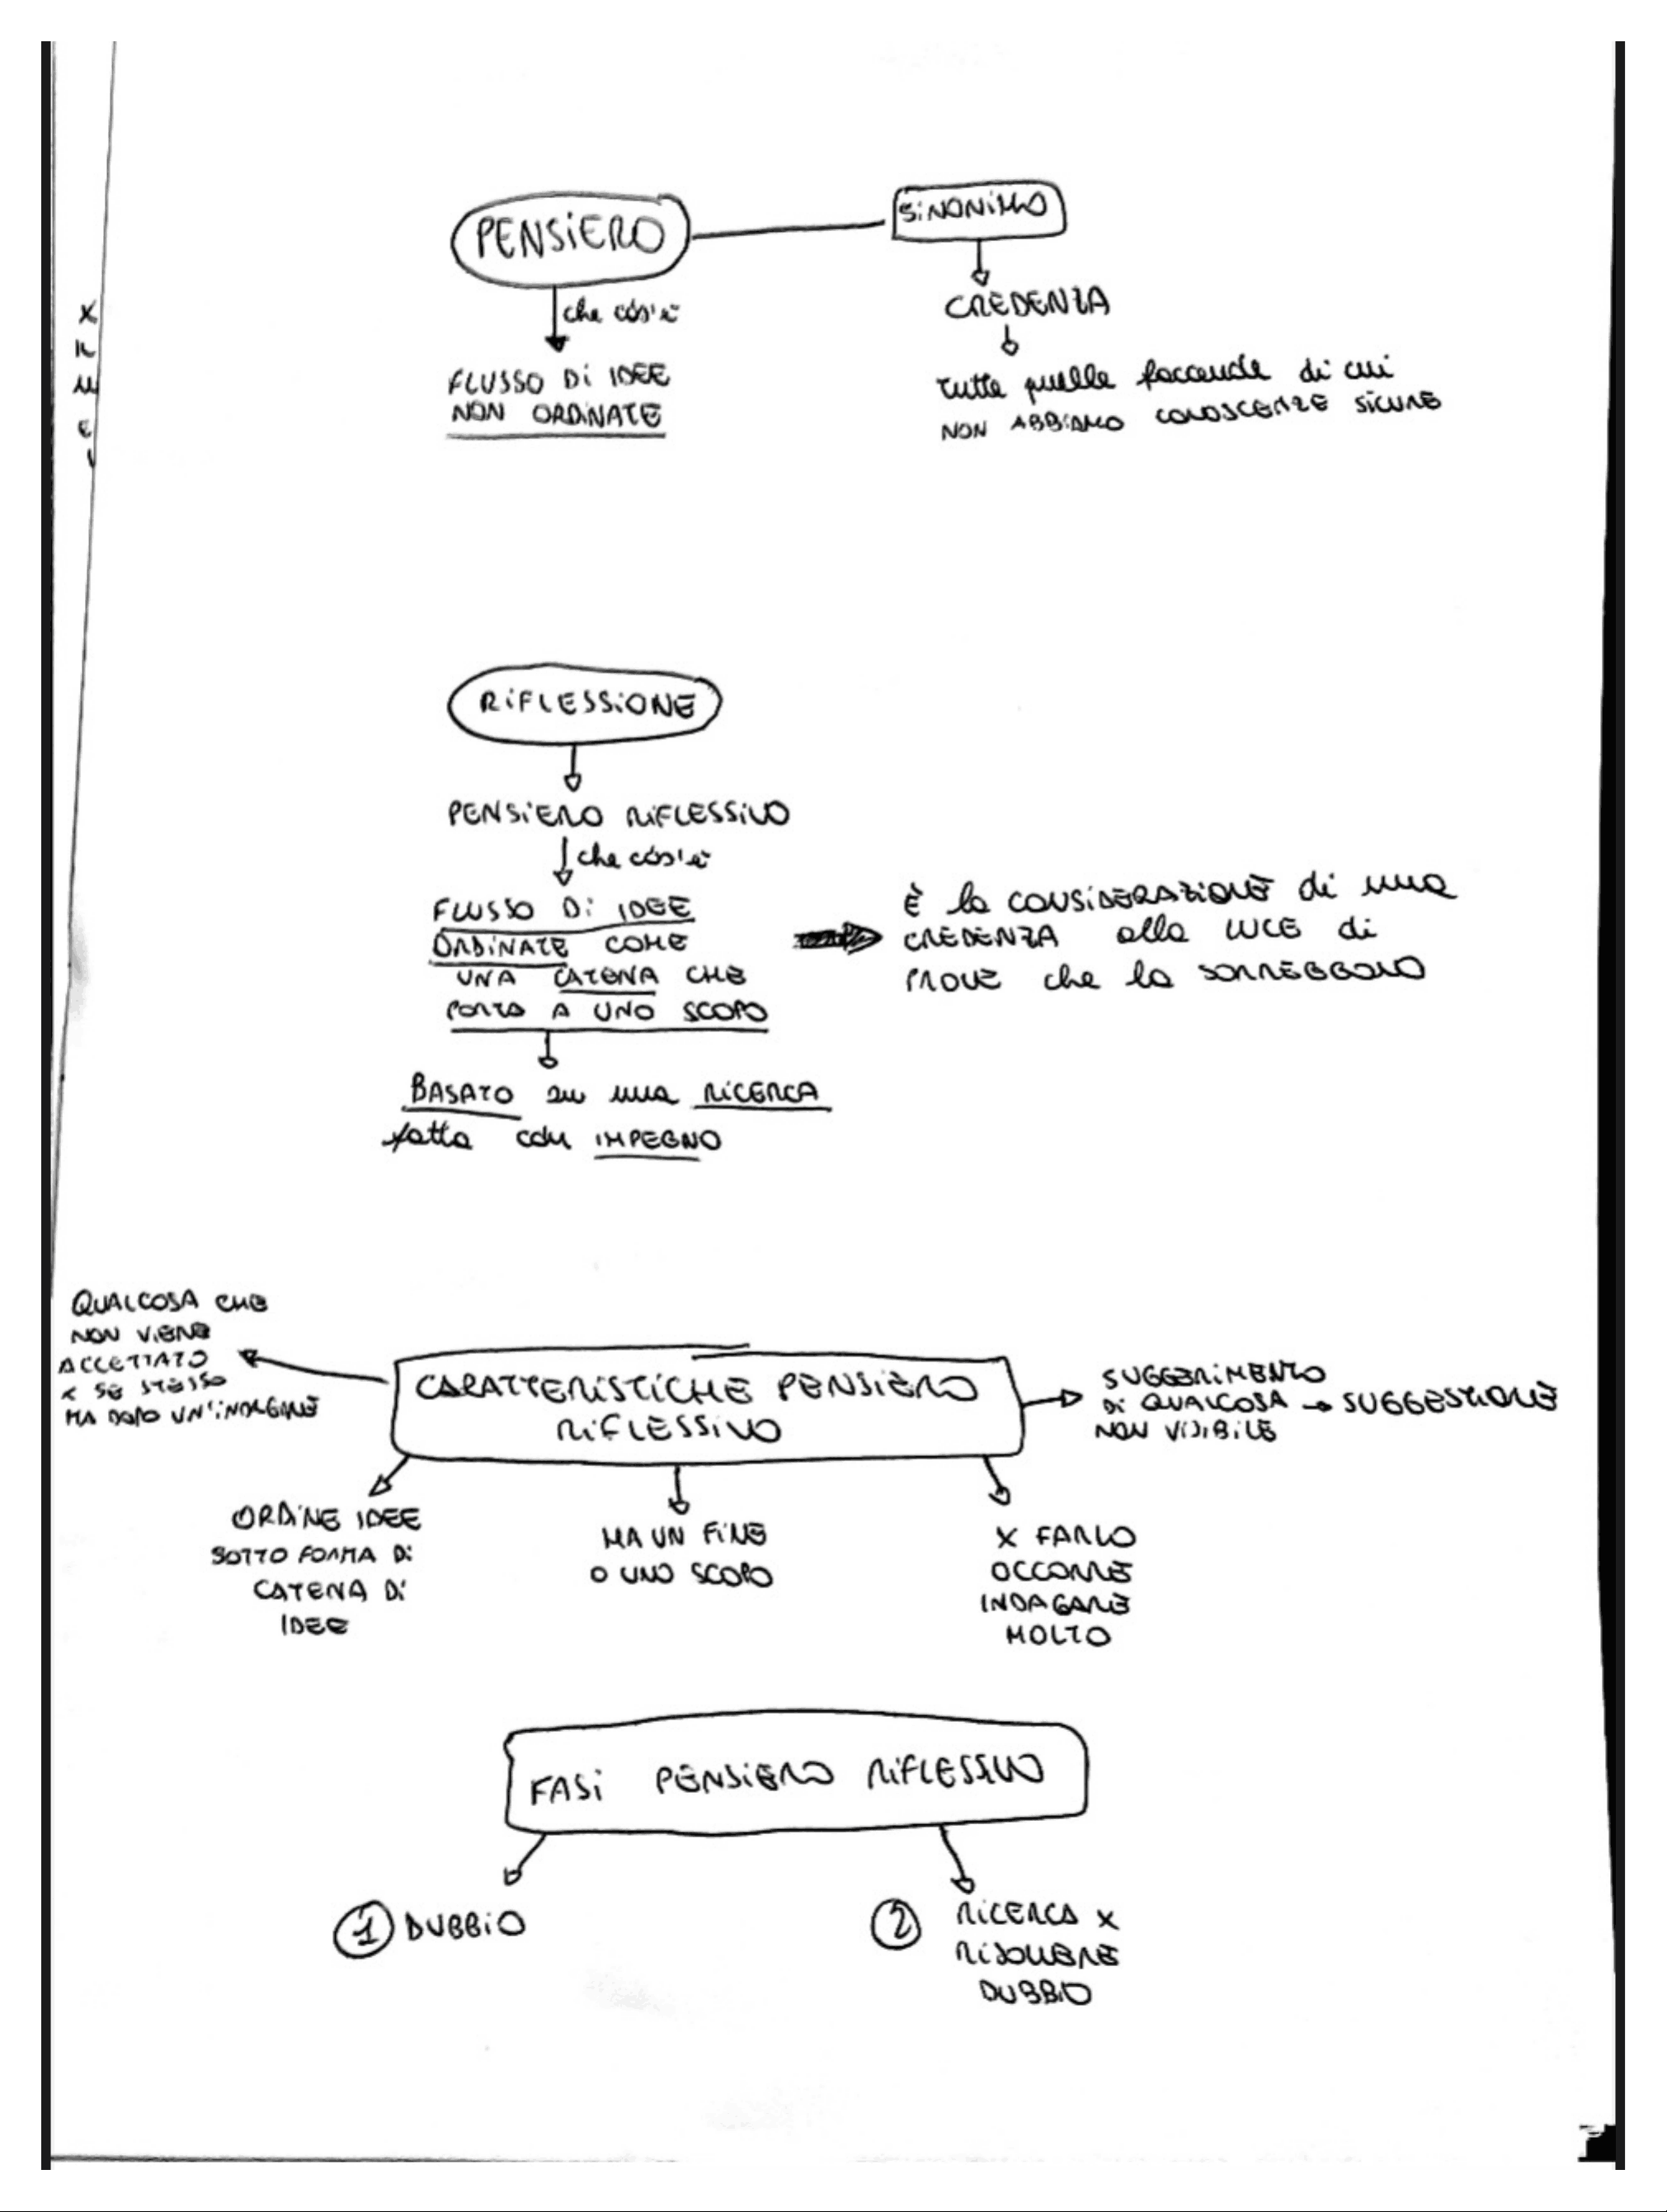 PENSIERO
SINONIMO
che cos'è
CREDENZA
FLUSSO DI IDEE
NON ORDINATE
tutte quelle faccende di cui
NON ABBIAMO CONOSCENZE SICURE
RIFLESSIONE
PENSIERO RIFLESSIVO
che cos'è
FLUSSO DI IDEE
ORDINATE COME
UNA CATENA CHE
PORTA A UNO SCOPO
È la CONSIDERAZIONE di una
CREDENZA alla LUCE di
PROVE che la SORREGGONO
BASATO su una RICERCA
fatta con IMPEGNO
QUALCOSA CHE
NON VIENE
ACCETTATO
X SE STESSO
MA DOPO UN'INDAGINE
CARATTERISTICHE PENSIERO
RIFLESSIVO
SUGGERIMENTO
DI QUALCOSA → SUGGESTIONE
NON VISIBILE
ORDINE IDEE
SOTTO FORMA DI
CATENA DI
IDEE
HA UN FINE
O UNO SCOPO
X FARLO
OCCORRE
INDAGARE
MOLTO
FASI PENSIERO RIFLESSIVO
1 DUBBIO
2 RICERCA X
RISOLVERE
DUBBIO